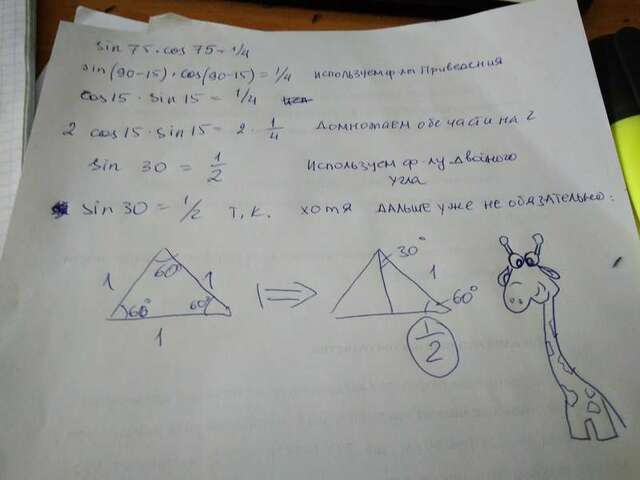 sin 75 · cos 75 = 1/4
sin(90-15) · cos(90-15) = 1/4 используем ф-лы Приведения
cos 15 · sin 15 = 1/4
2 cos 15 · sin 15 = 2 · 1/4 Домножаем обе части на 2
sin 30 = 1/2 Используем ф-лу двойного
угла
sin 30 = 1/2 т.к. хотя дальше уже не обязательно:
60° 30°
1 1 1
60° 60° ⇒ 60°
1 1/2